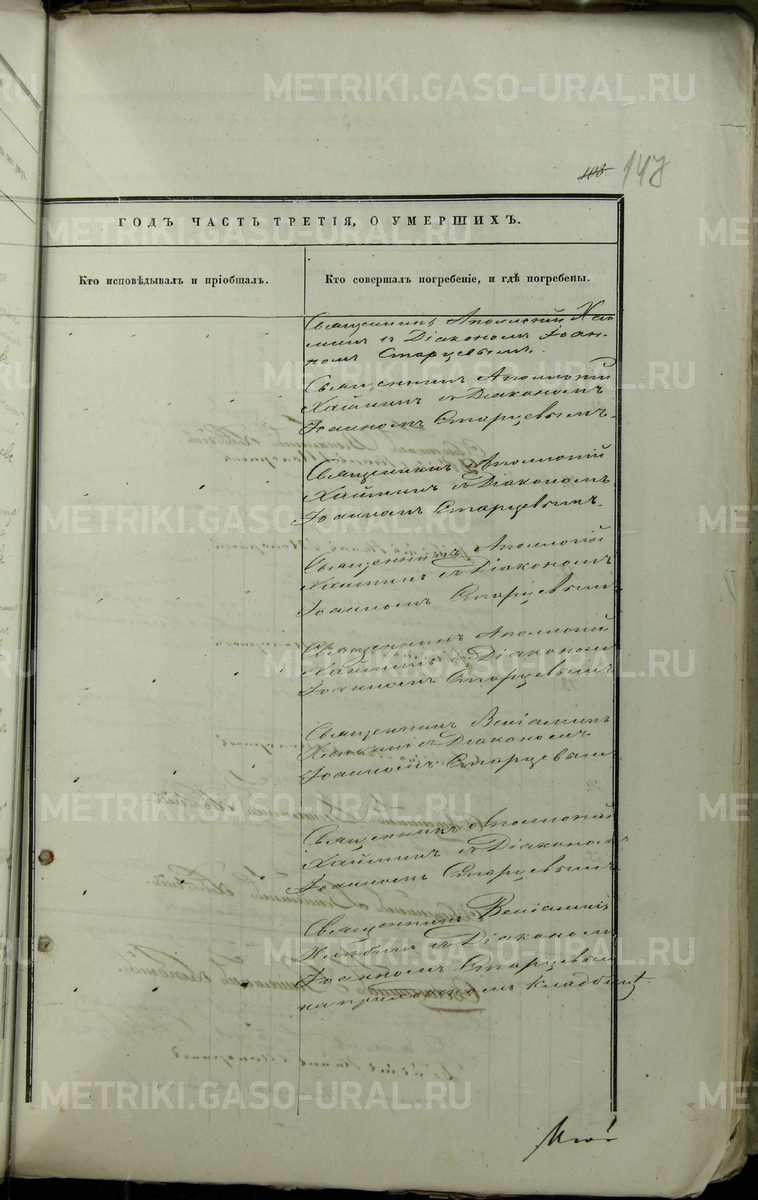 METRIKI.GASO-URAL.RU
103. 147
ГОДЪ ЧАСТЬ ТРЕТІЯ, О УМЕРШИХЪ.
Кто исповѣдывалъ и пріобщалъ. Кто совершалъ погребеніе, и гдѣ погребены.
Священникъ Аполлоній Хай-
минъ съ Діакономъ Іоан-
номъ Старцевымъ.
Священникъ Аполлоній
Хайминъ съ Діакономъ
Іоанномъ Старцевымъ.
Священникъ Аполлоній
Хайминъ съ Діакономъ
Іоанномъ Старцевымъ.
Священникъ Аполлоній
Хайминъ съ Діакономъ
Іоанномъ Старцевымъ
Священникъ Аполлоній
Хайминъ съ Діакономъ
Іоанномъ Старцевымъ
Священникъ Веніаминъ
съ Діакономъ
Іоанномъ Старцевымъ
Священникъ Аполлоній
Хайминъ съ Діакономъ
Іоанномъ Старцевымъ
Священникъ Веніаминъ
съ Діакономъ
Іоанномъ Старцевымъ
на приходскомъ кладбищѣ.